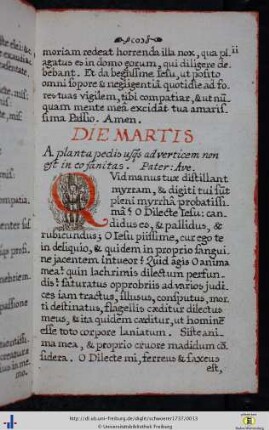 moriam redeat horrenda illa nox, qua pl
agatus es in domo eorum, qui diligere de
bebant. Et da benignissime Iesu, ut posito
omni sopore & negligentiâ quotidie ad fo
res tuas vigilem, tibi compatiar, & ut nũ
quam mente meâ excidat tua amaris
sima Passio. Amen.
DIE MARTIS
A planta pedis usq; ad verticem non
est in eo sanitas. Pater: Ave.
Quid manus tuæ distillant
myrram, & digiti tui sũt
pleni myrrhâ probatissi
mâ? O Dilecte Iesu: can
didus es, & pallidus, &
rubicundus; O Iesu piissime, cur ego te
in deliquio, & quidem in proprio sangui
ne jacentem intueor? Quid agis O anima
mea? quin lachrimis dilectum perfun
dis? saturatus opprobriis ad varios judi
ces iam tractus, illusus, consputus, mor
ti destinatus, flagellis cæditur dilectus
meus, & ita quidem cæditur, ut hominē
esse toto corpore laniatum. Siste ani
ma mea, & proprio cruore madidum cō
sidera. O Dilecte mi, ferreus & saxeus
est,
http://dl.ub.uni-freiburg.de/diglit/schwerer1737/0013
© Universitätsbibliothek Freiburg